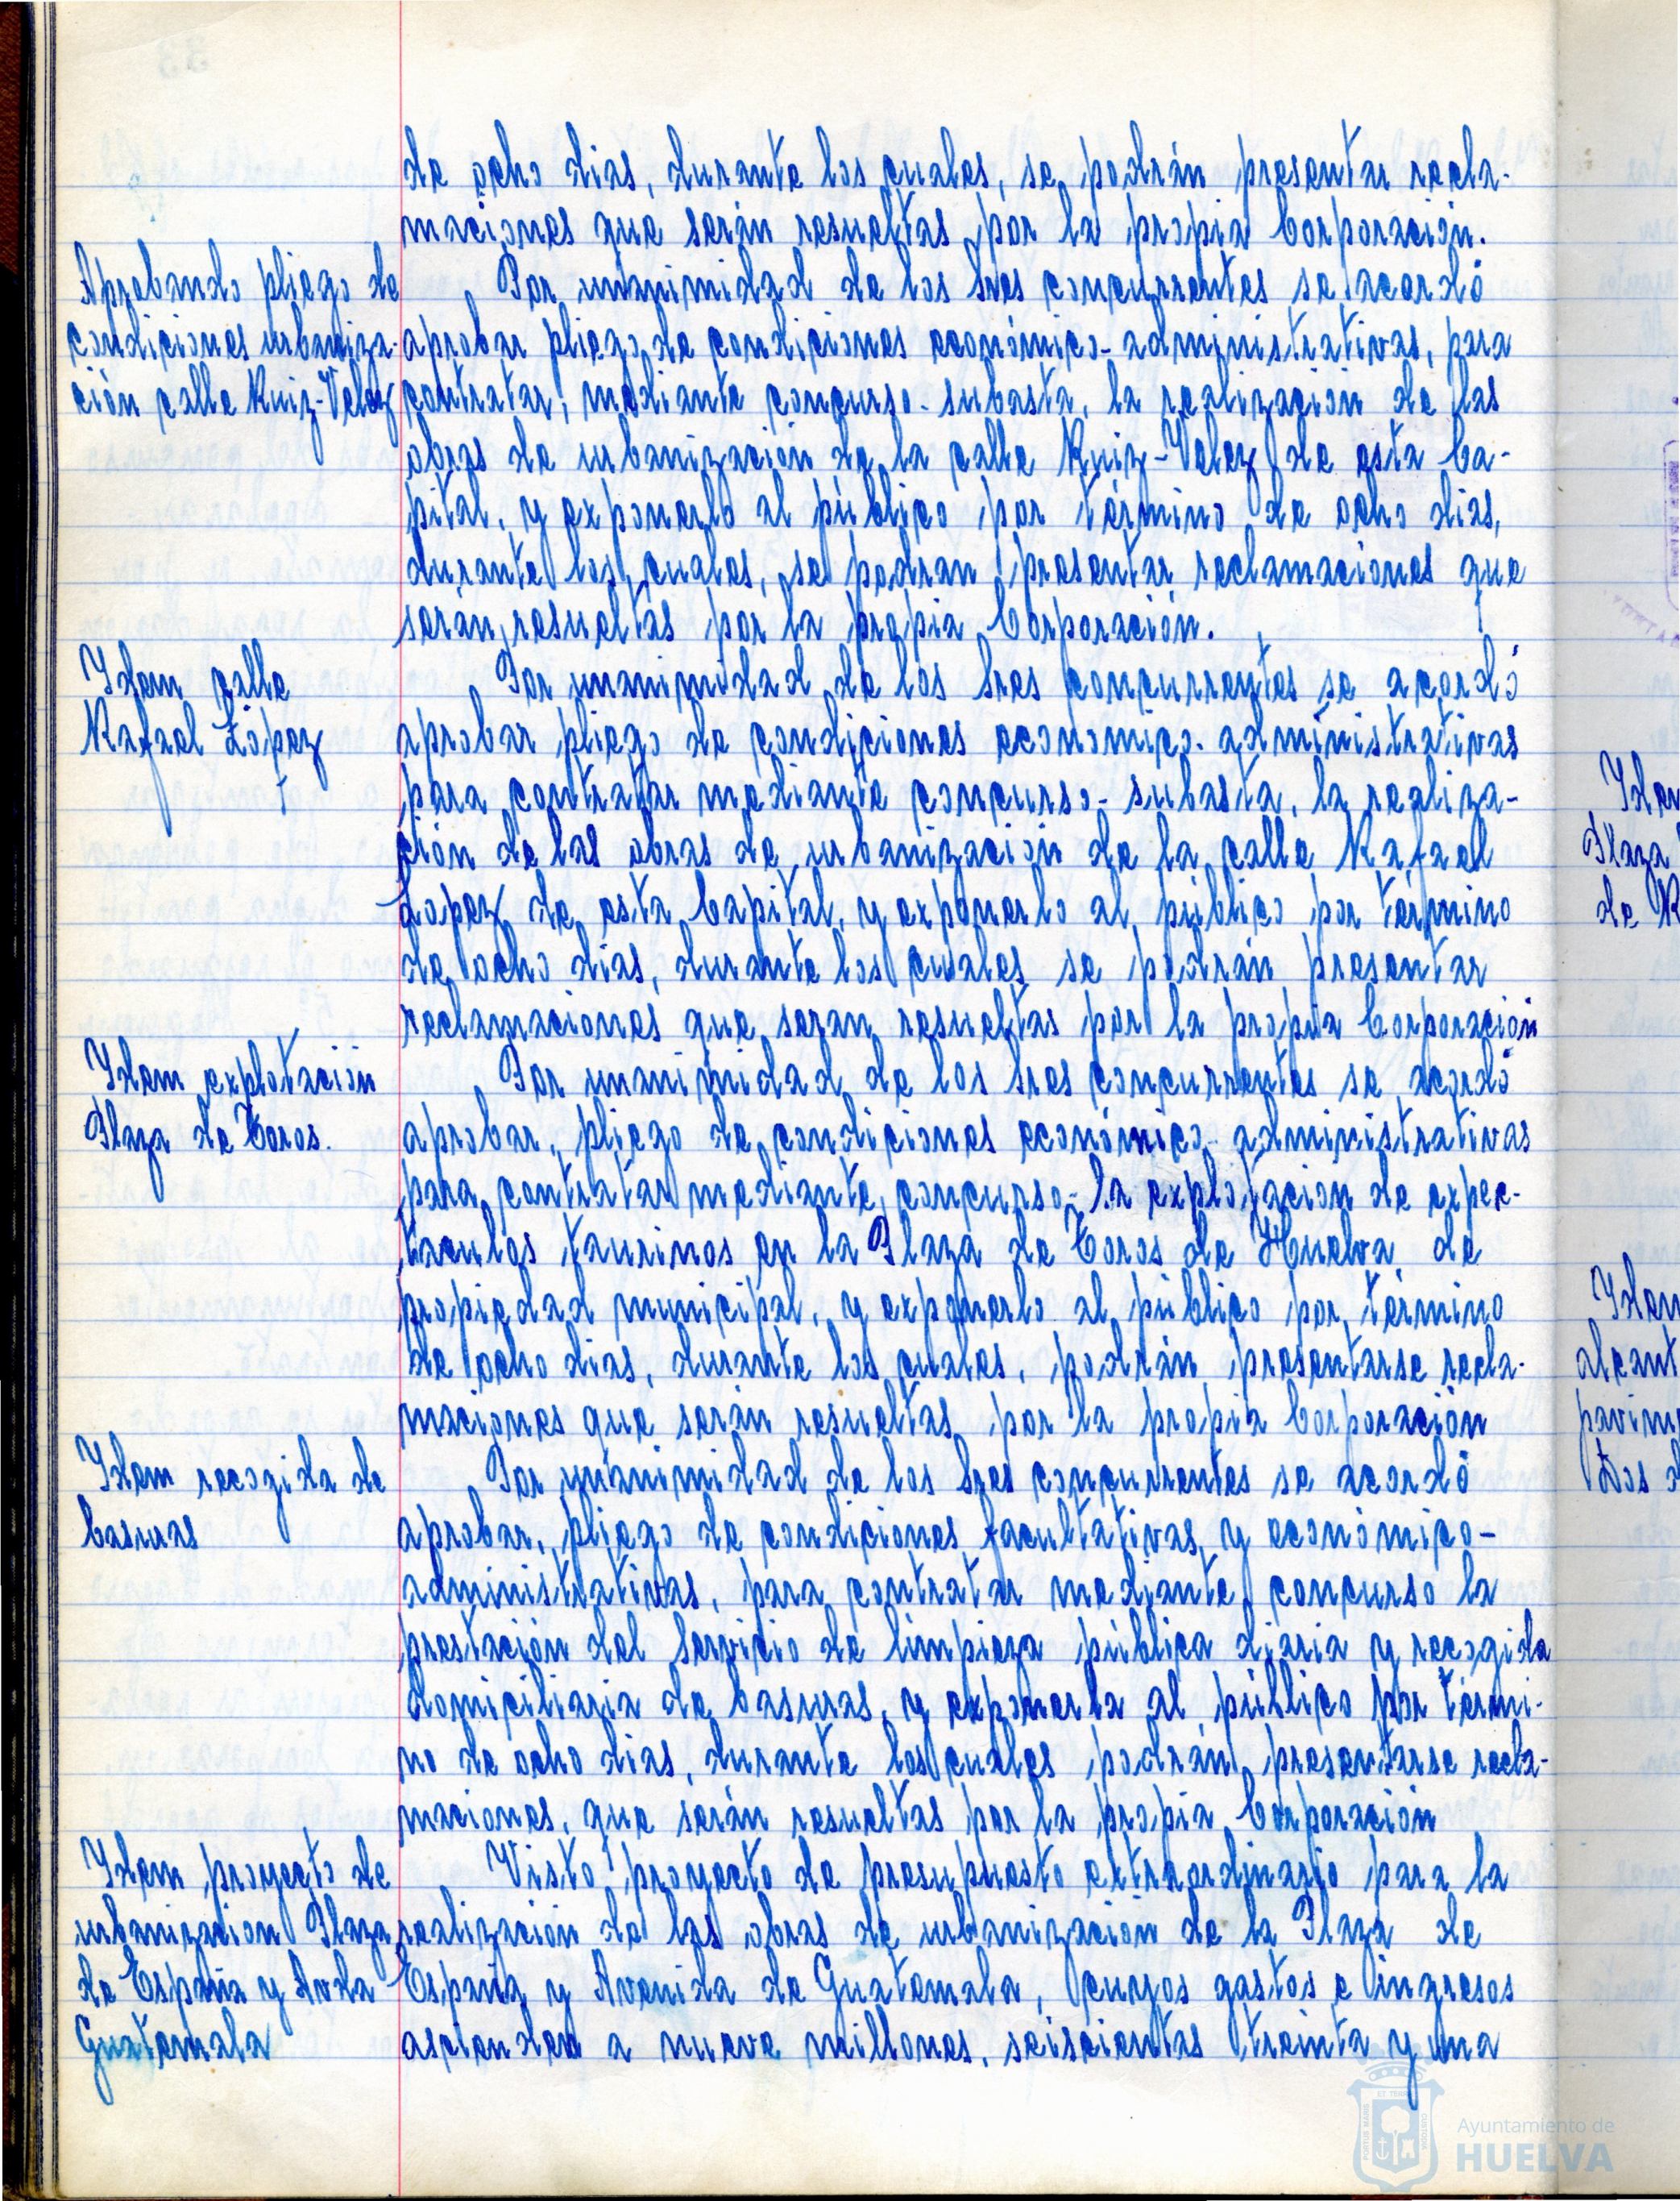 de ocho dias, durante los cuales, se podrán presentar recla-
maciones que serán resueltas por la propia Corporación.
Aprobando pliego de
condiciones urbaniza-
ción calle Ruiz-Velez
Por unanimidad de los Sres concurrentes se acordó
aprobar pliego de condiciones económico-administrativas, para
contratar, mediante concurso-subasta, la realización de las
obras de urbanización de la calle Ruiz-Velez de esta Ca-
pital, y exponerlo al público por término de ocho dias,
durante los cuales, se podran presentar reclamaciones que
serán resueltas por la propia Corporación.
Idem calle
Rafael López
Por unanimidad de los Sres concurrentes se acordó
aprobar pliego de condiciones económico-administrativas
para contratar mediante concurso-subasta, la realiza-
ción de las obras de urbanización de la calle Rafael
Lopez de esta Capital, y exponerlo al público por término
de ocho dias, durante los cuales se podrán presentar
reclamaciones que seran resueltas por la propia Corporación
Idem explotación
Plaza de Toros.
Por unanimidad de los Sres concurrentes se acordó
aprobar, pliego de condiciones económico-administrativas
para contratar mediante, concurso-la explotación de expec-
taculos taurinos en la Plaza de Toros de Huelva de
propiedad municipal, y exponerlo al público por término
de ocho dias, durante los cuales, podrán presentarse recla-
maciones que serán resueltas por la propia Corporación
Idem recogida de
basuras
Por unanimidad de los Sres concurrentes se acordó
aprobar, pliego de condiciones facultativas y económico-
administrativas, para contratar mediante concurso la
prestación del Servicio de limpieza pública diaria y recogida
domiciliaria de basuras, y exponerla al público por térmi-
no de ocho dias, durante los cuales podrán presentarse recla-
maciones, que serán resueltas por la propia Corporación
Idem proyecto de
urbanizacion Plaza
de España y Avda
Guatemala
Visto proyecto de presupuesto extraordinario para la
realización de las obras de urbanización de la Plaza de
España y Avenida de Guatemala, cuyos gastos e ingresos
ascienden a nueve millones, seiscientas treinta y una
Plaza
de R
alcant
pavim
Dos d
Ayuntamiento de
HUELVA